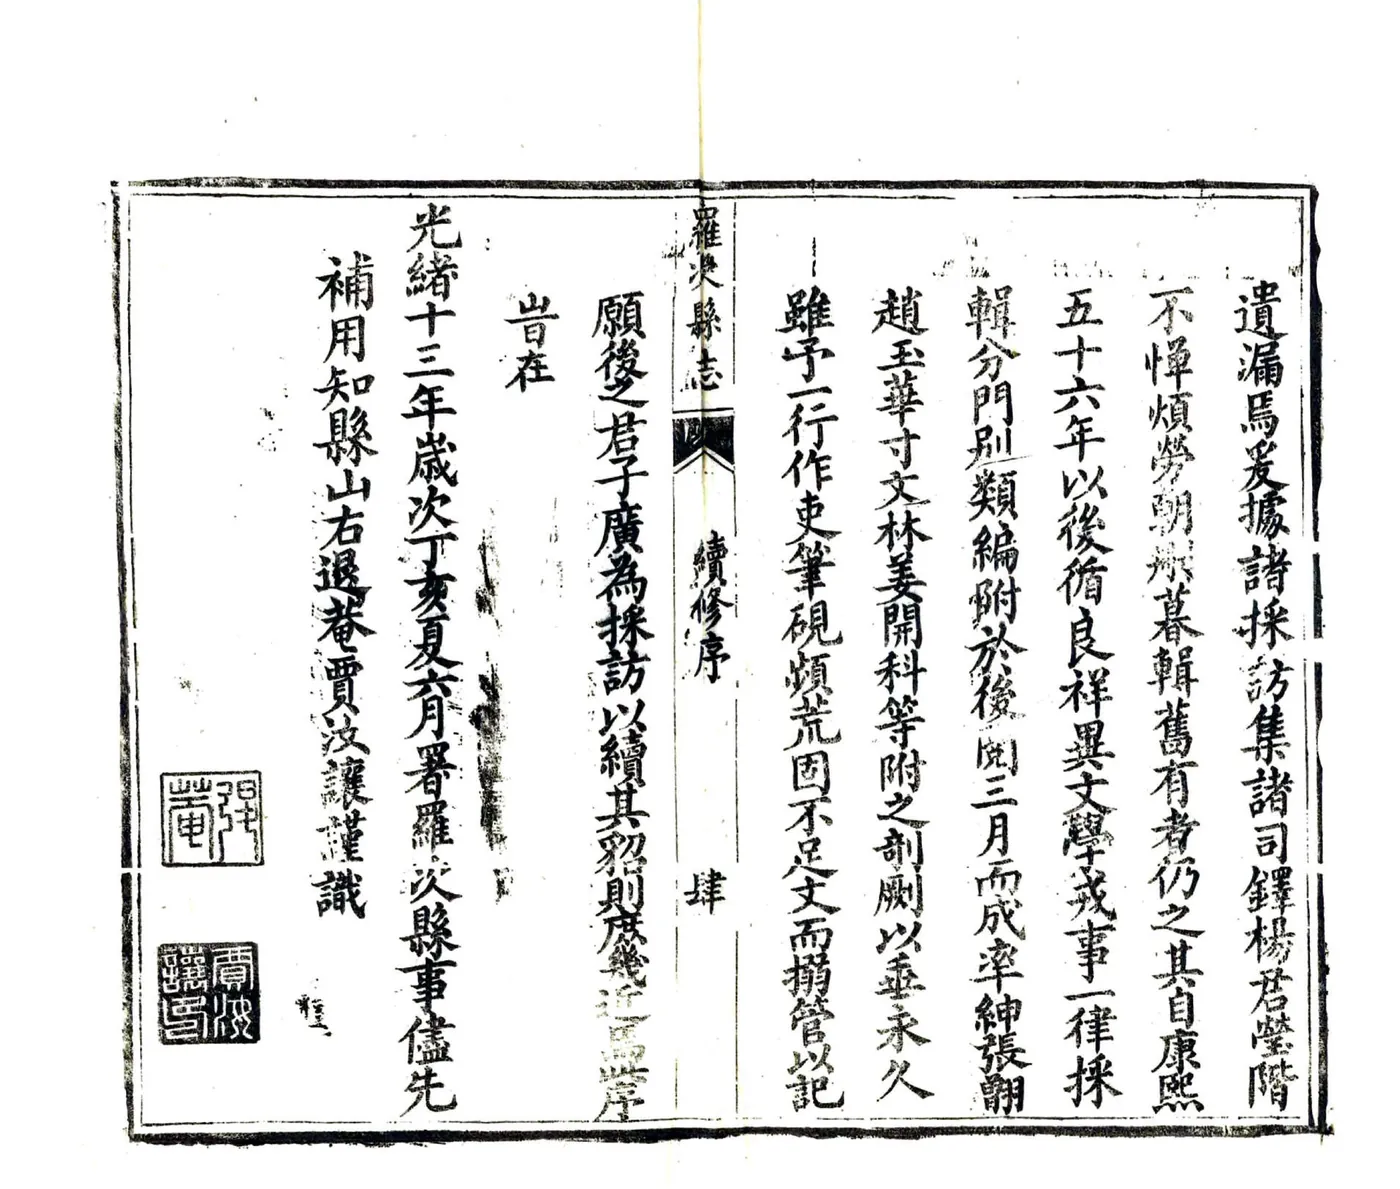 遺漏焉爰據諸採訪集諸司鐸楊君瑩階
不憚煩勞朝刪暮輯舊有者仍之其自康熙
五十六年以後循良祥異文學戎事一律採
輯分門別類編附於後閱三月而成率紳張翺
趙玉華寸文林姜開科等附之剞劂以垂永久
雖予一行作吏筆硯頻荒固不足文而搦管以記
羅次縣志
續修序
肆
願後之君子廣為採訪以續其貂則庶幾近焉此序
峕在
光緒十三年歲次丁亥夏六月署羅次縣事儘先
補用知縣山右退菴賈汝讓謹識
退菴
賈汝讓印